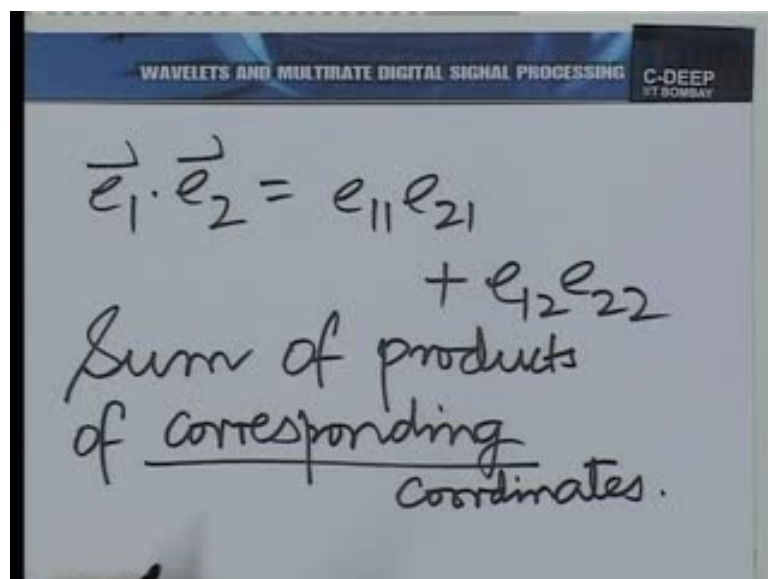 WAVELETS AND MULTIRATE DIGITAL SIGNAL PROCESSING
C-DEEP
IIT BOMBAY
e⃗₁ · e⃗₂ = e₁₁e₂₁
+ e₁₂e₂₂
Sum of products
of corresponding
coordinates.